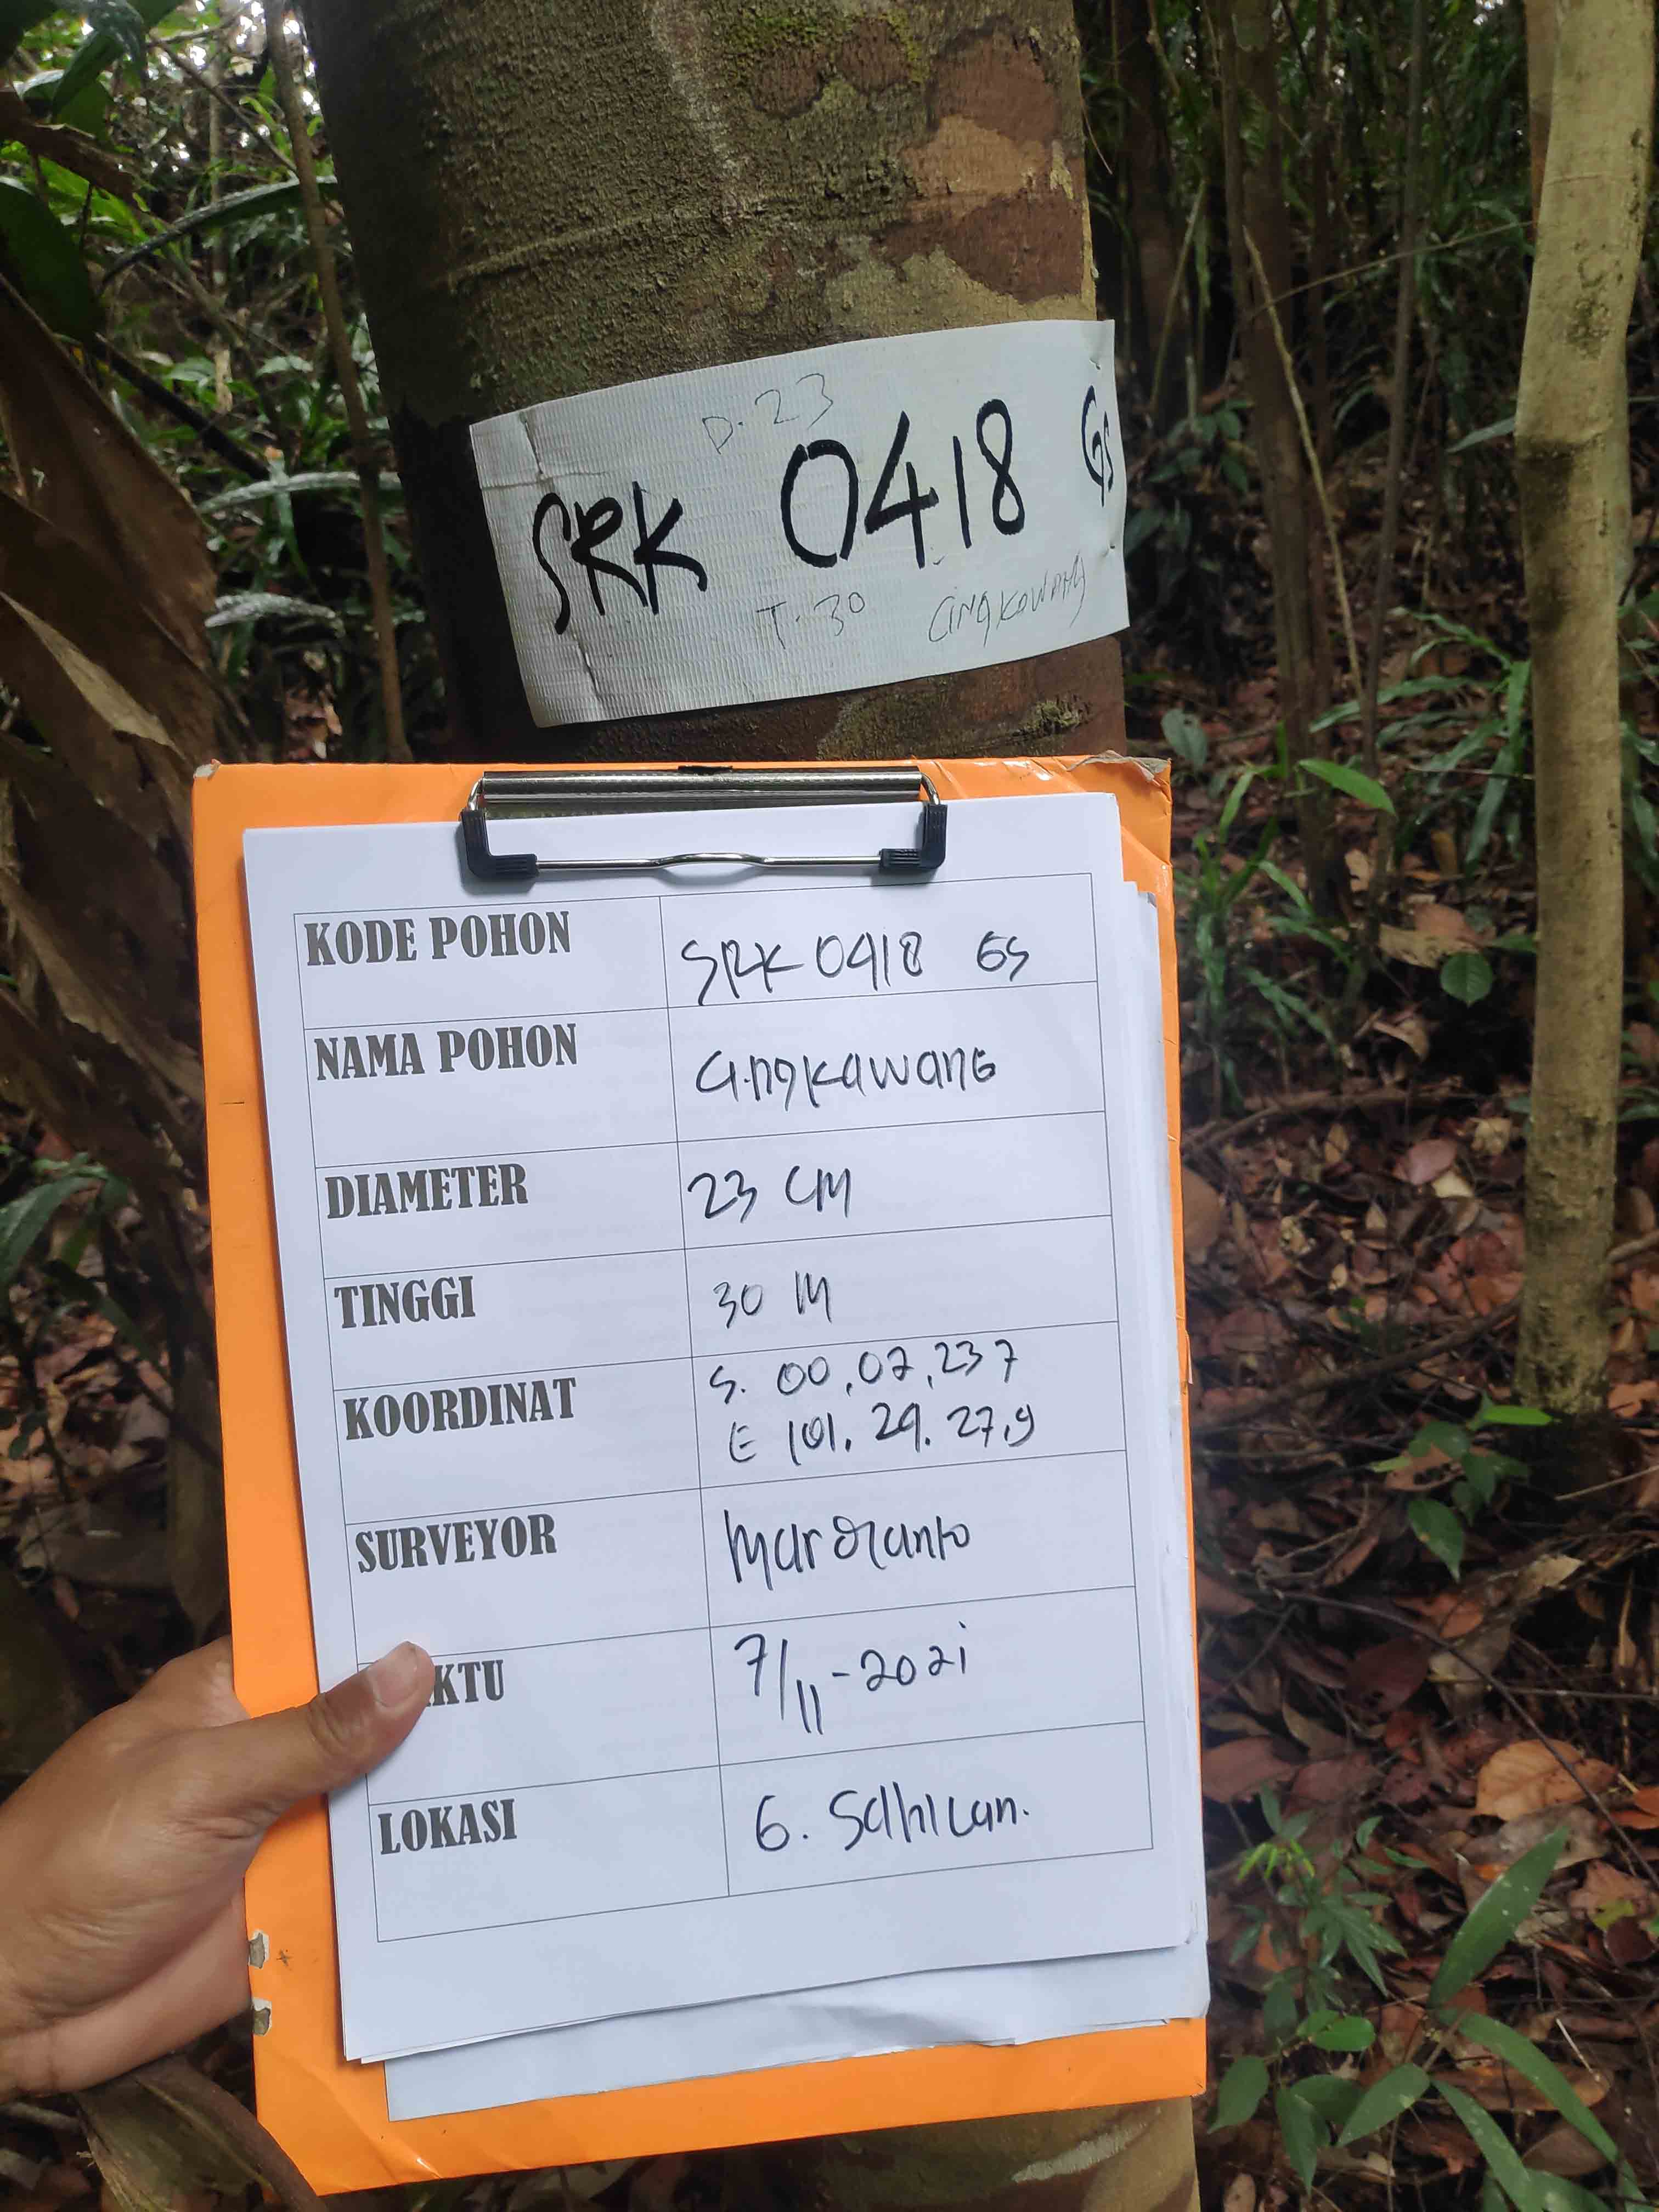 D. 23
SRK 0418 GS
T. 30 Cingkawang
KODE POHON SRK 0418 GS
NAMA POHON Cingkawang
DIAMETER 23 CM
TINGGI 30 M
KOORDINAT S. 00.02.237
E 101.29.27.9
SURVEYOR Mardianto
KTU 7/11-2021
LOKASI G. Sahilan.